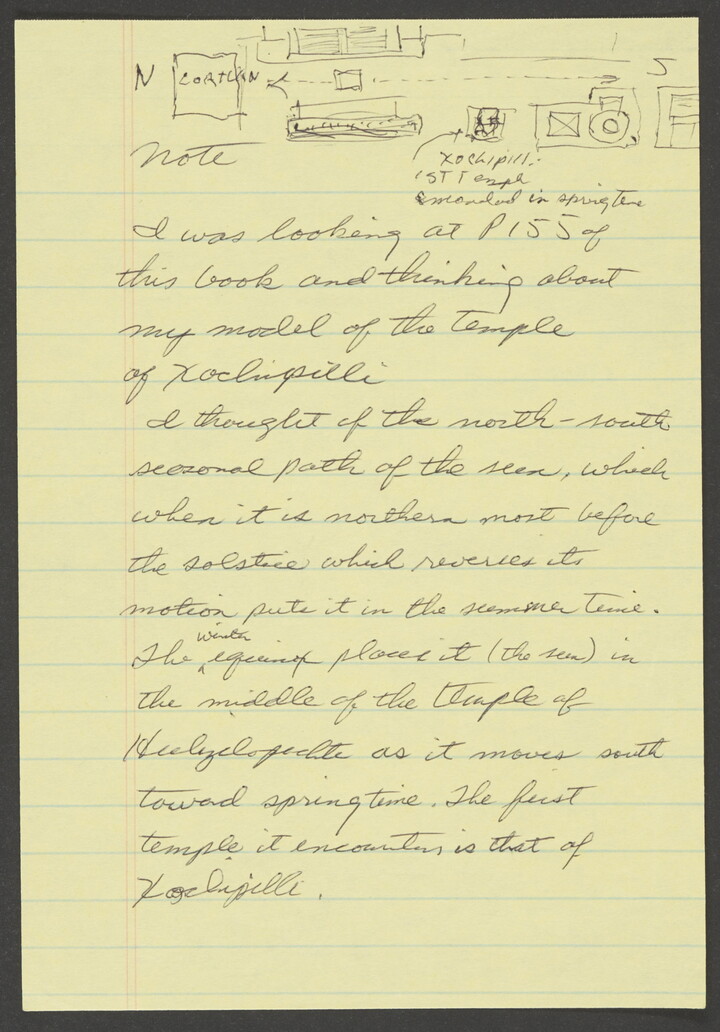 N
S
Note
Xochipilli
1ST Temple
in springtime
I was looking at P 155 of
this book and thinking about
my model of the temple
of Xochipilli
I thought of the north-south
seasonal path of the sun, which
when it is northern most before
the solstice which reverses its
motion puts it in the summer time.
The winter equinox places it (the sun) in
the middle of the temple of
as it moves south
toward springtime. The first
temple it encounters is that of
Xochipilli.